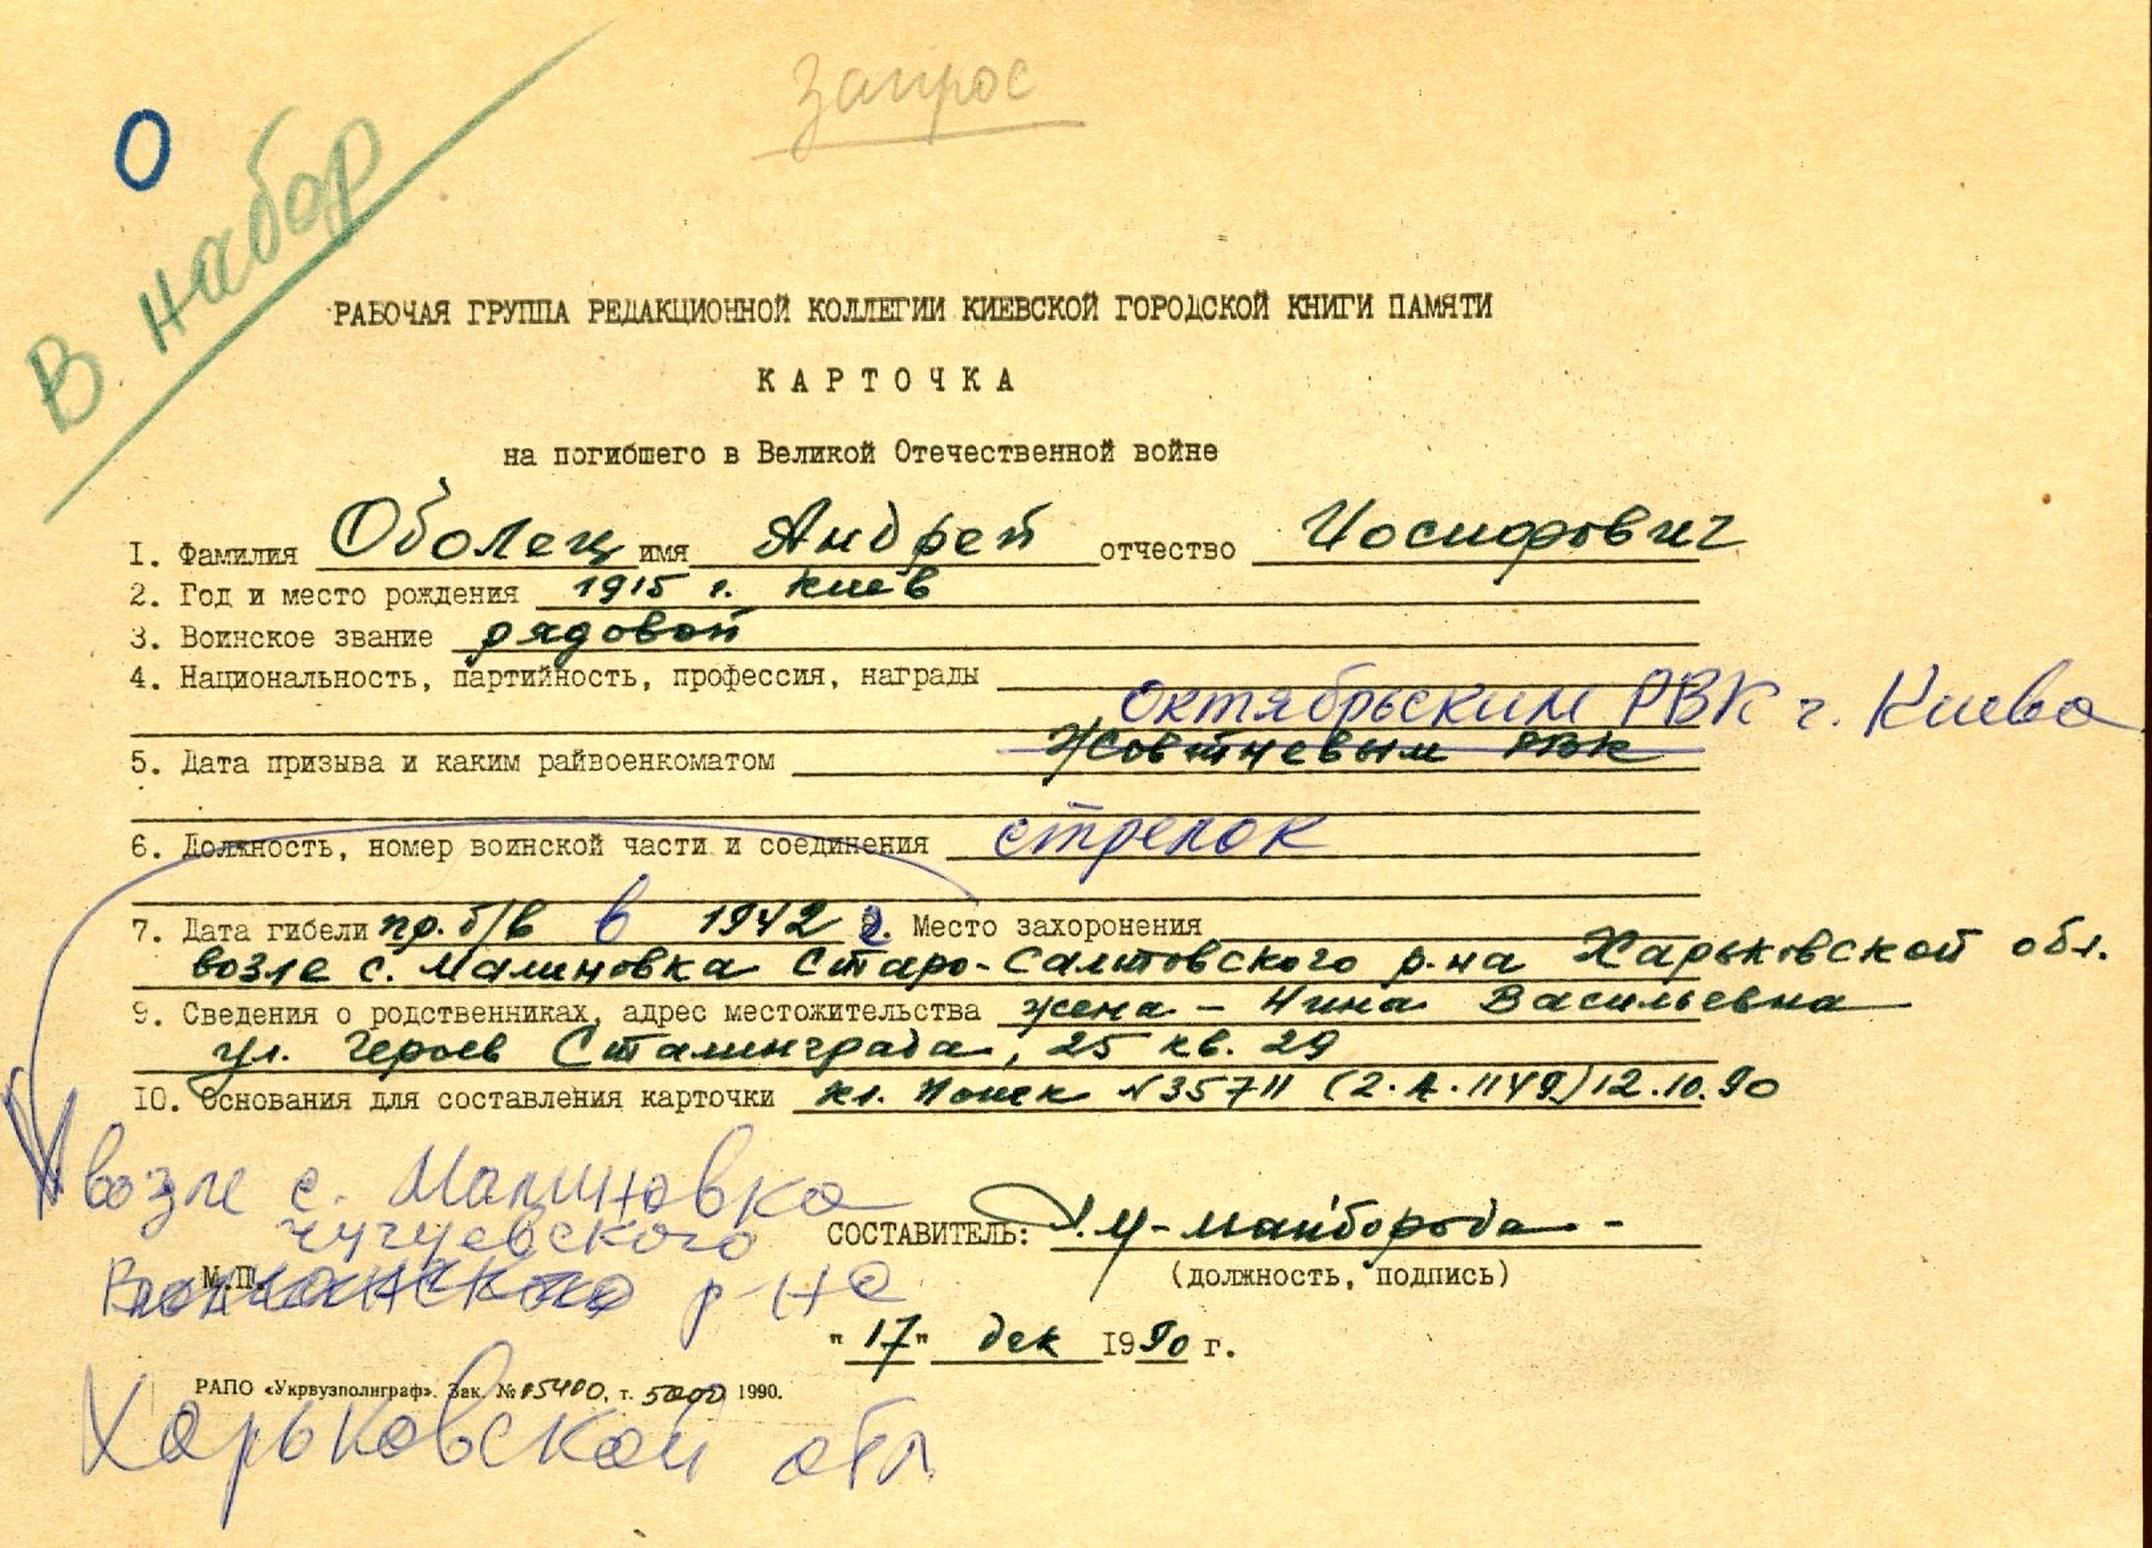 О
В набор
запрос
РАБОЧАЯ ГРУППА РЕДАКЦИОННОЙ КОЛЛЕГИИ КИЕВСКОЙ ГОРОДСКОЙ КНИГИ ПАМЯТИ
КАРТОЧКА
на погибшего в Великой Отечественной войне
I. Фамилия Оболец имя Андрей отчество Иосифович
2. Год и место рождения 1915 г. Киев
3. Воинское звание рядовой
4. Национальность, партийность, профессия, награды
Октябрьским РВК г. Киева
5. Дата призыва и каким райвоенкоматом Жовтневым РВК
6. Должность, номер воинской части и соединения стрелок
7. Дата гибели пр. б/в в 1942 г. Место захоронения
возле с. Малиновка Старо-Салтовского р-на Харьковской обл.
9. Сведения о родственниках, адрес местожительства жена - Нина Васильевна
ул. Героев Сталинграда, 25 кв. 29
10. Основания для составления карточки кл. Поиск №35711 (2.А.1149) 12.10.90
возле с. Малиновка
чугуевского
СОСТАВИТЕЛЬ: Майборода -
М.П. р-на
(должность, подпись)
"17" дек 1990 г.
РАПО «Укрвузполиграф». Зак. № 5400, т. 5000 1990.
Харьковской обл